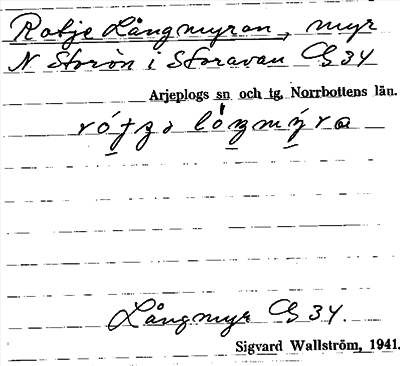 Ratje Långmyran, myr
N Storön i Storavan G 34
Arjeplogs sn och tg, Norrbottens län.
Långmyr G 34.
Sigvard Wallström, 1941.